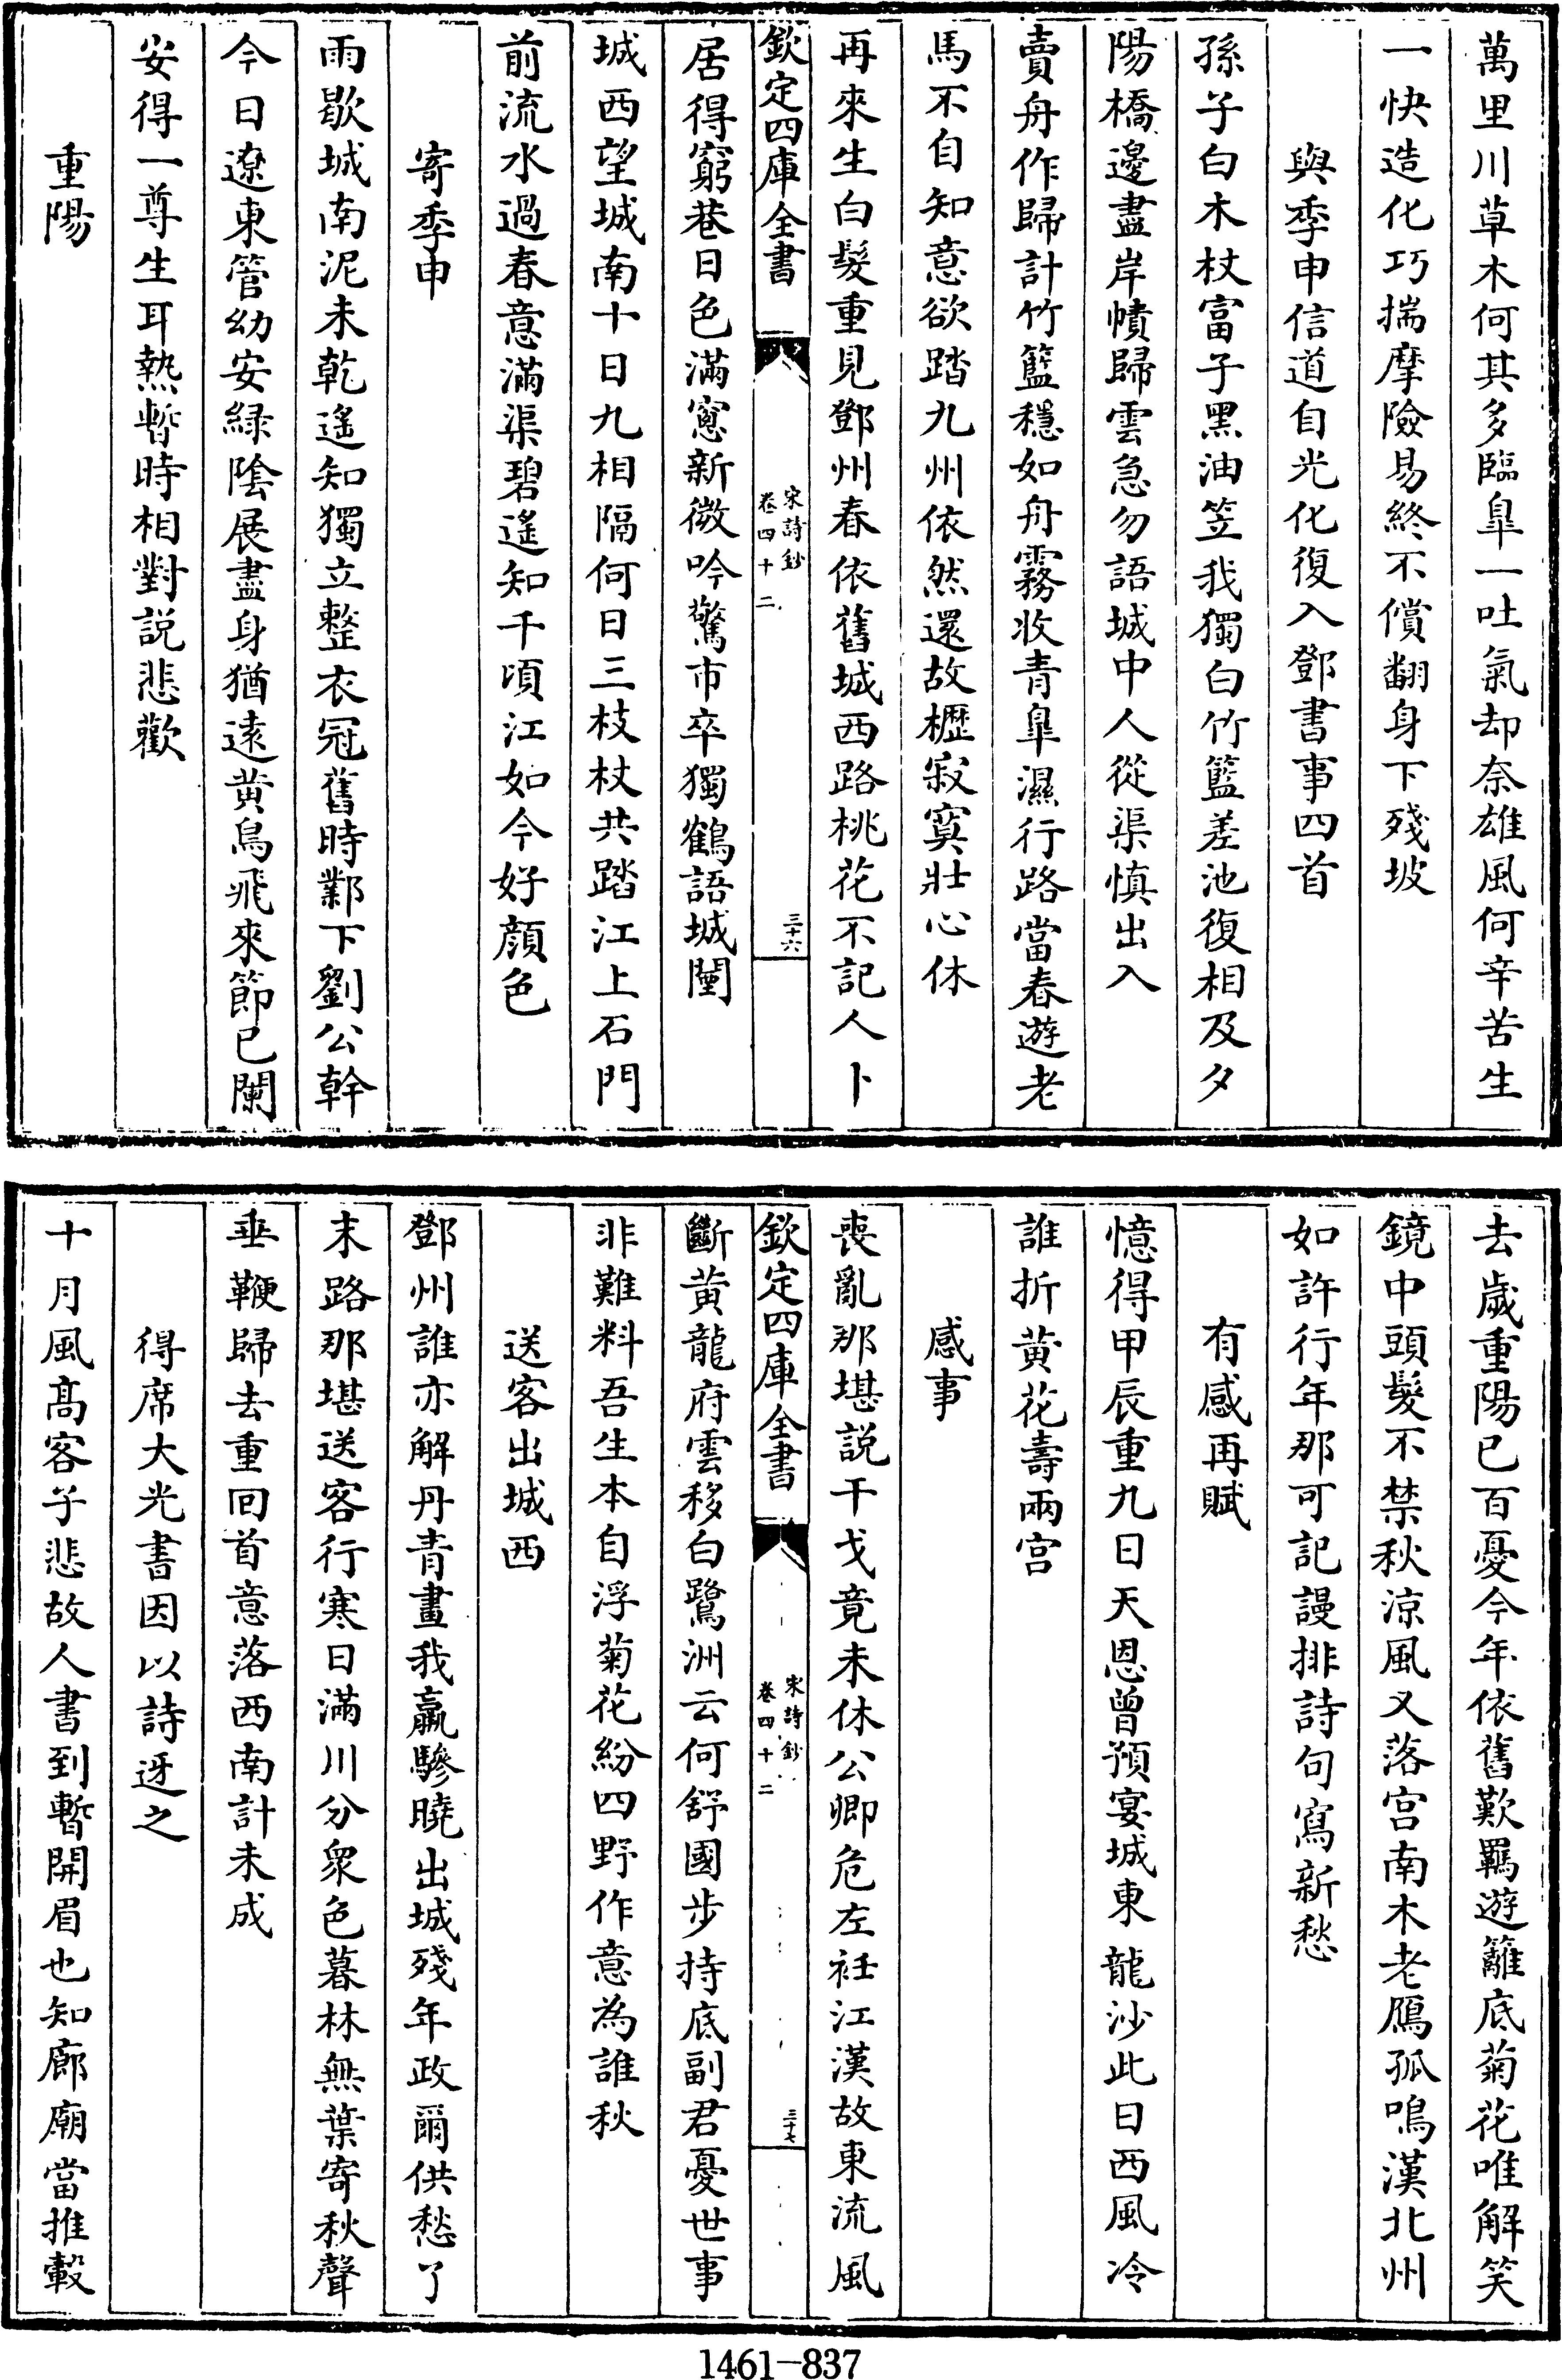 萬里川草木何其多臨臯一吐氣却奈雄風何辛苦生
一快造化巧揣摩險易終不償翻身下殘坡
與季申信道自光化復入鄧書事四首
孫子白木杖富子黑油笠我獨白竹籃差池復相及夕
陽橋邊盡岸幘歸雲急勿語城中人從渠慎出入
賣舟作歸計竹籃穩如舟霧收青臯濕行路當春遊老
馬不自知意欲踏九州依然還故櫪寂寞壯心休
再來生白髮重見鄧州春依舊城西路桃花不記人卜
欽定四庫全書
宋詩鈔
卷四十二
三十六
居得窮巷日色滿窻新微吟驚市卒獨鶴語城闉
城西望城南十日九相隔何日三枝杖共踏江上石門
前流水過春意滿渠碧遙知千頃江如今好顔色
寄季申
雨歇城南泥未乾遙知獨立整衣冠舊時鄴下劉公幹
今日遼東管幼安緑陰展盡身猶逺黄鳥飛來節已闌
安得一尊生耳熱暫時相對説悲歡
重陽
去歲重陽已百憂今年依舊歎羈遊籬底菊花唯解笑
鏡中頭髮不禁秋涼風又落宫南木老鴈孤鳴漢北州
如許行年那可記謾排詩句寫新愁
有感再賦
憶得甲辰重九日天恩曾預宴城東龍沙此日西風冷
誰折黄花壽兩宫
感事
喪亂那堪説干戈竟未休公卿危左衽江漢故東流風
欽定四庫全書
宋詩鈔
卷四十二
三十七
斷黄龍府雲移白鷺洲云何舒國步持底副君憂世事
非難料吾生本自浮菊花紛四野作意為誰秋
送客出城西
鄧州誰亦解丹青畫我羸驂曉出城殘年政爾供愁了
末路那堪送客行寒日滿川分衆色暮林無葉寄秋聲
垂鞭歸去重回首意落西南計未成
得席大光書因以詩迓之
十月風髙客子悲故人書到暫開眉也知廊廟當推轂
1461-837